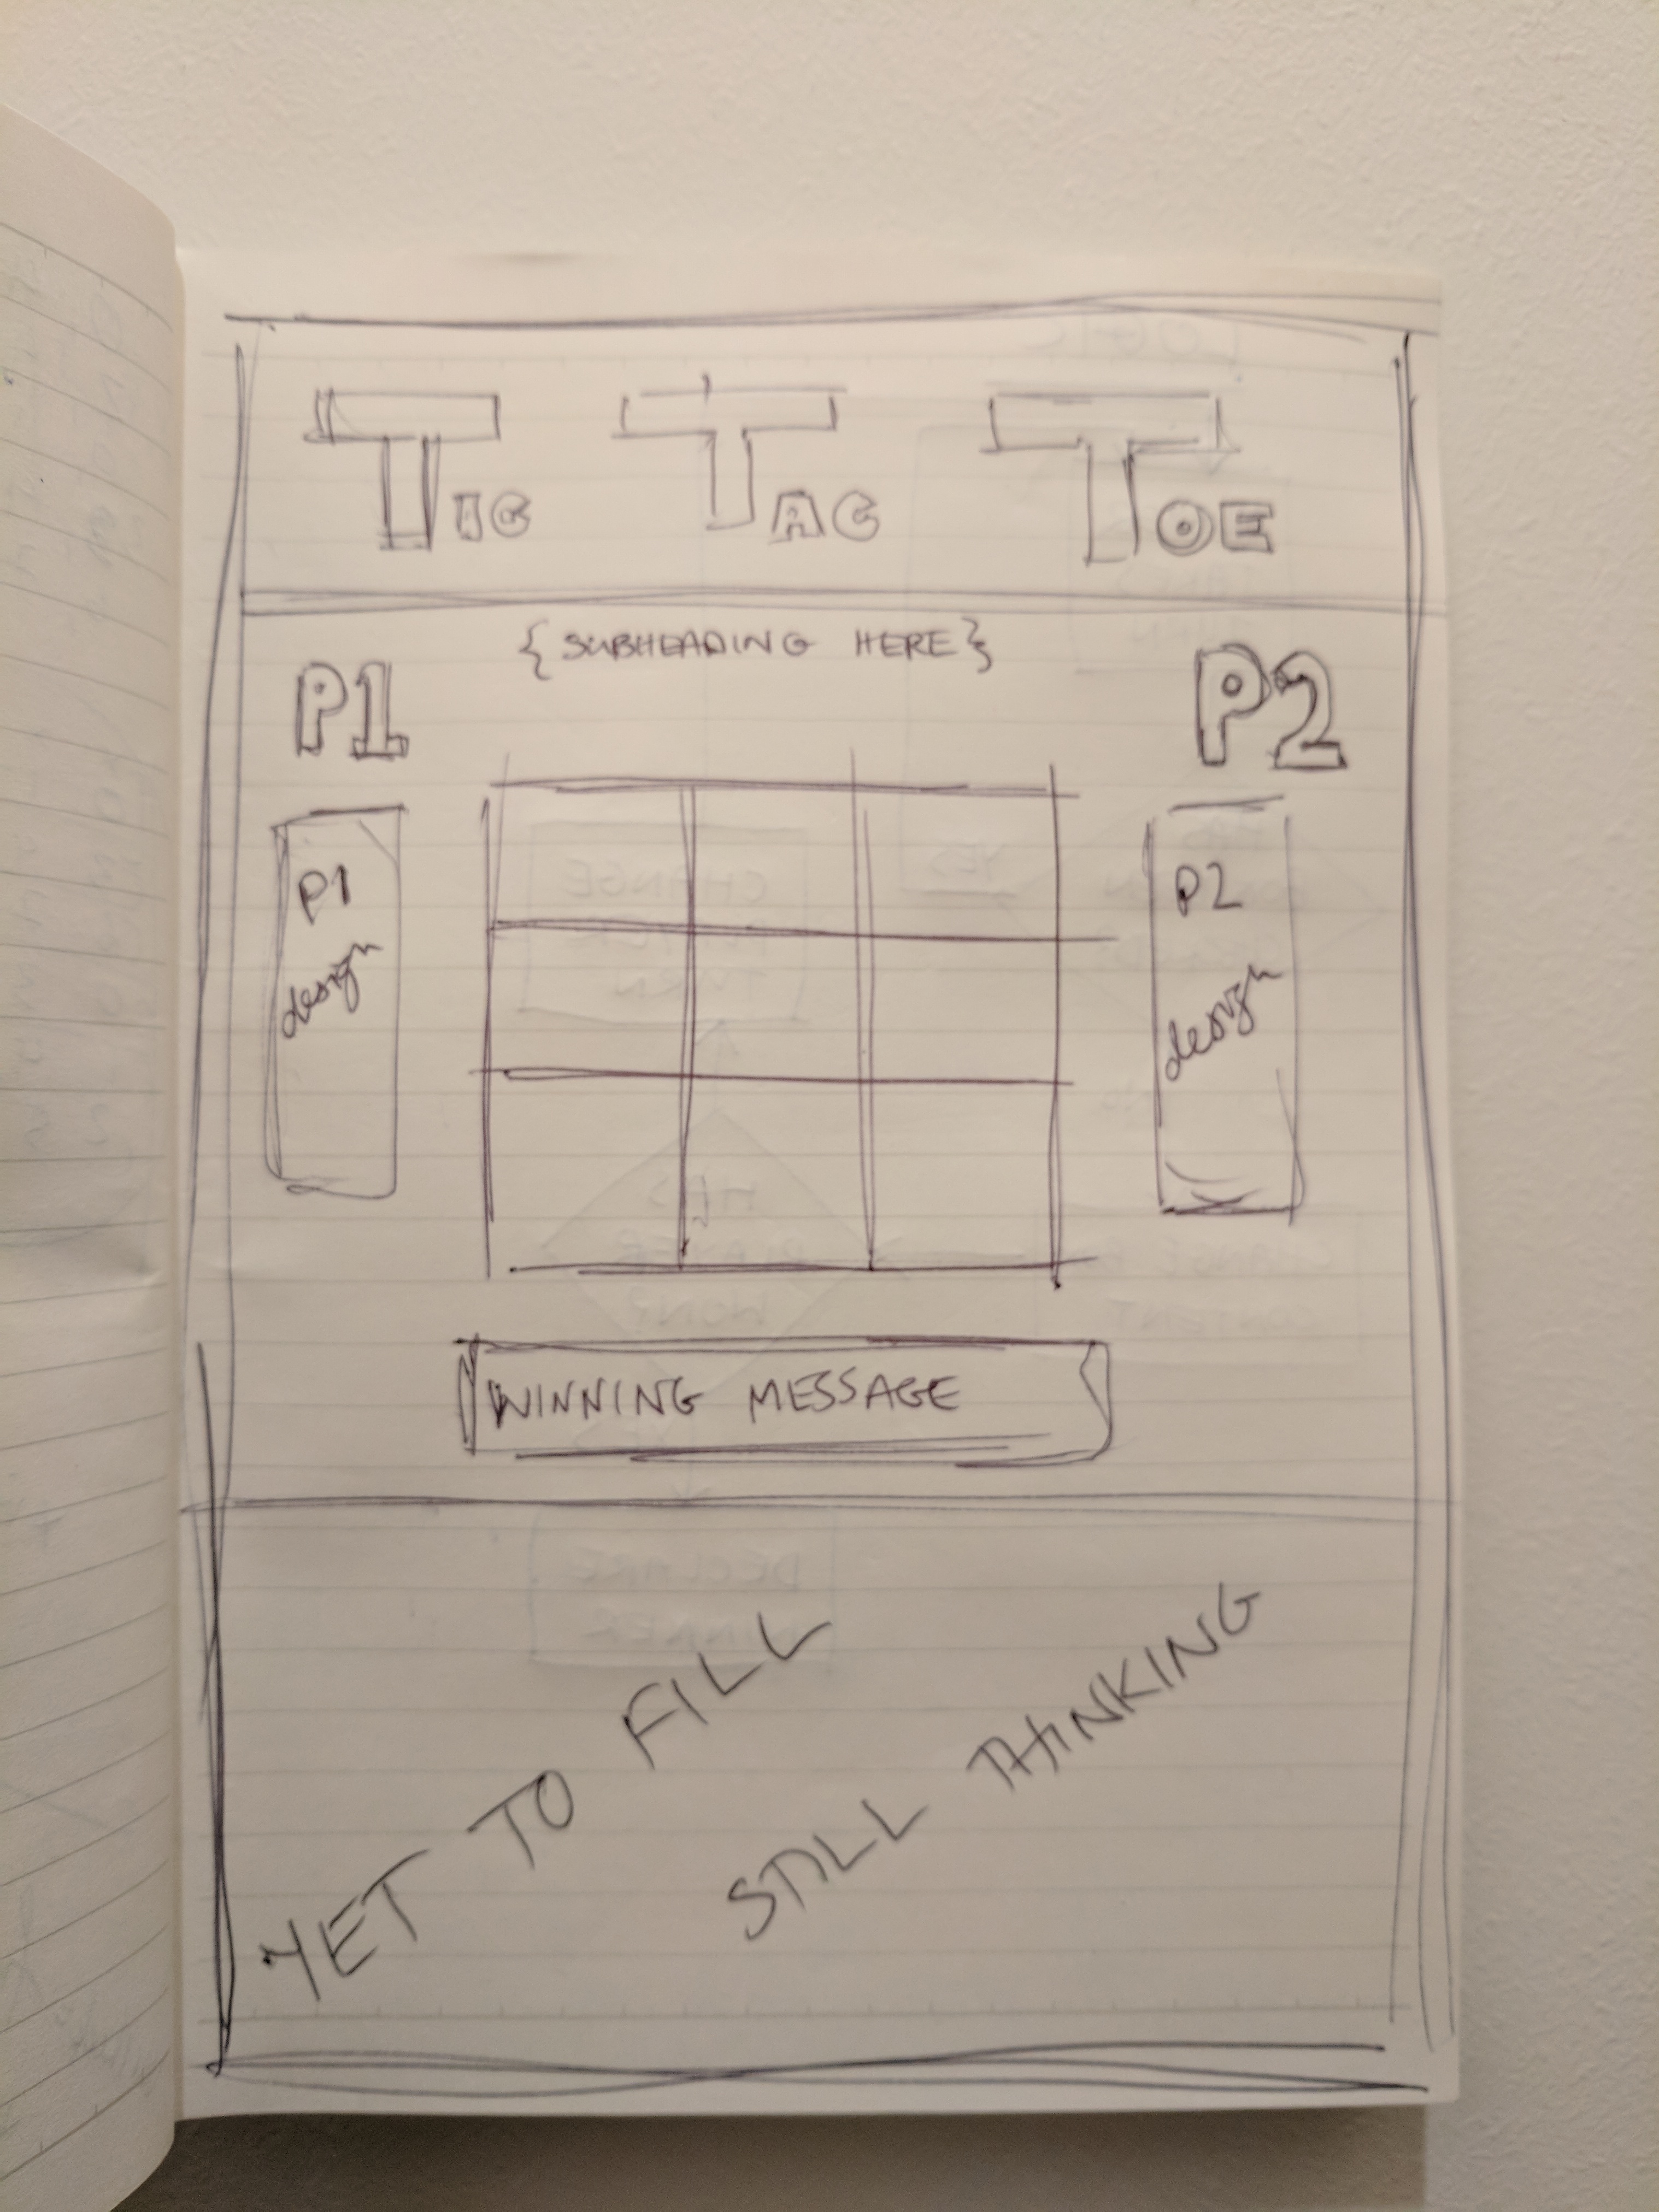 TIC TAC TOE
{SUBHEADING HERE}
P1 P2
P1 P2
design design
WINNING MESSAGE
YET TO FILL
STILL THINKING